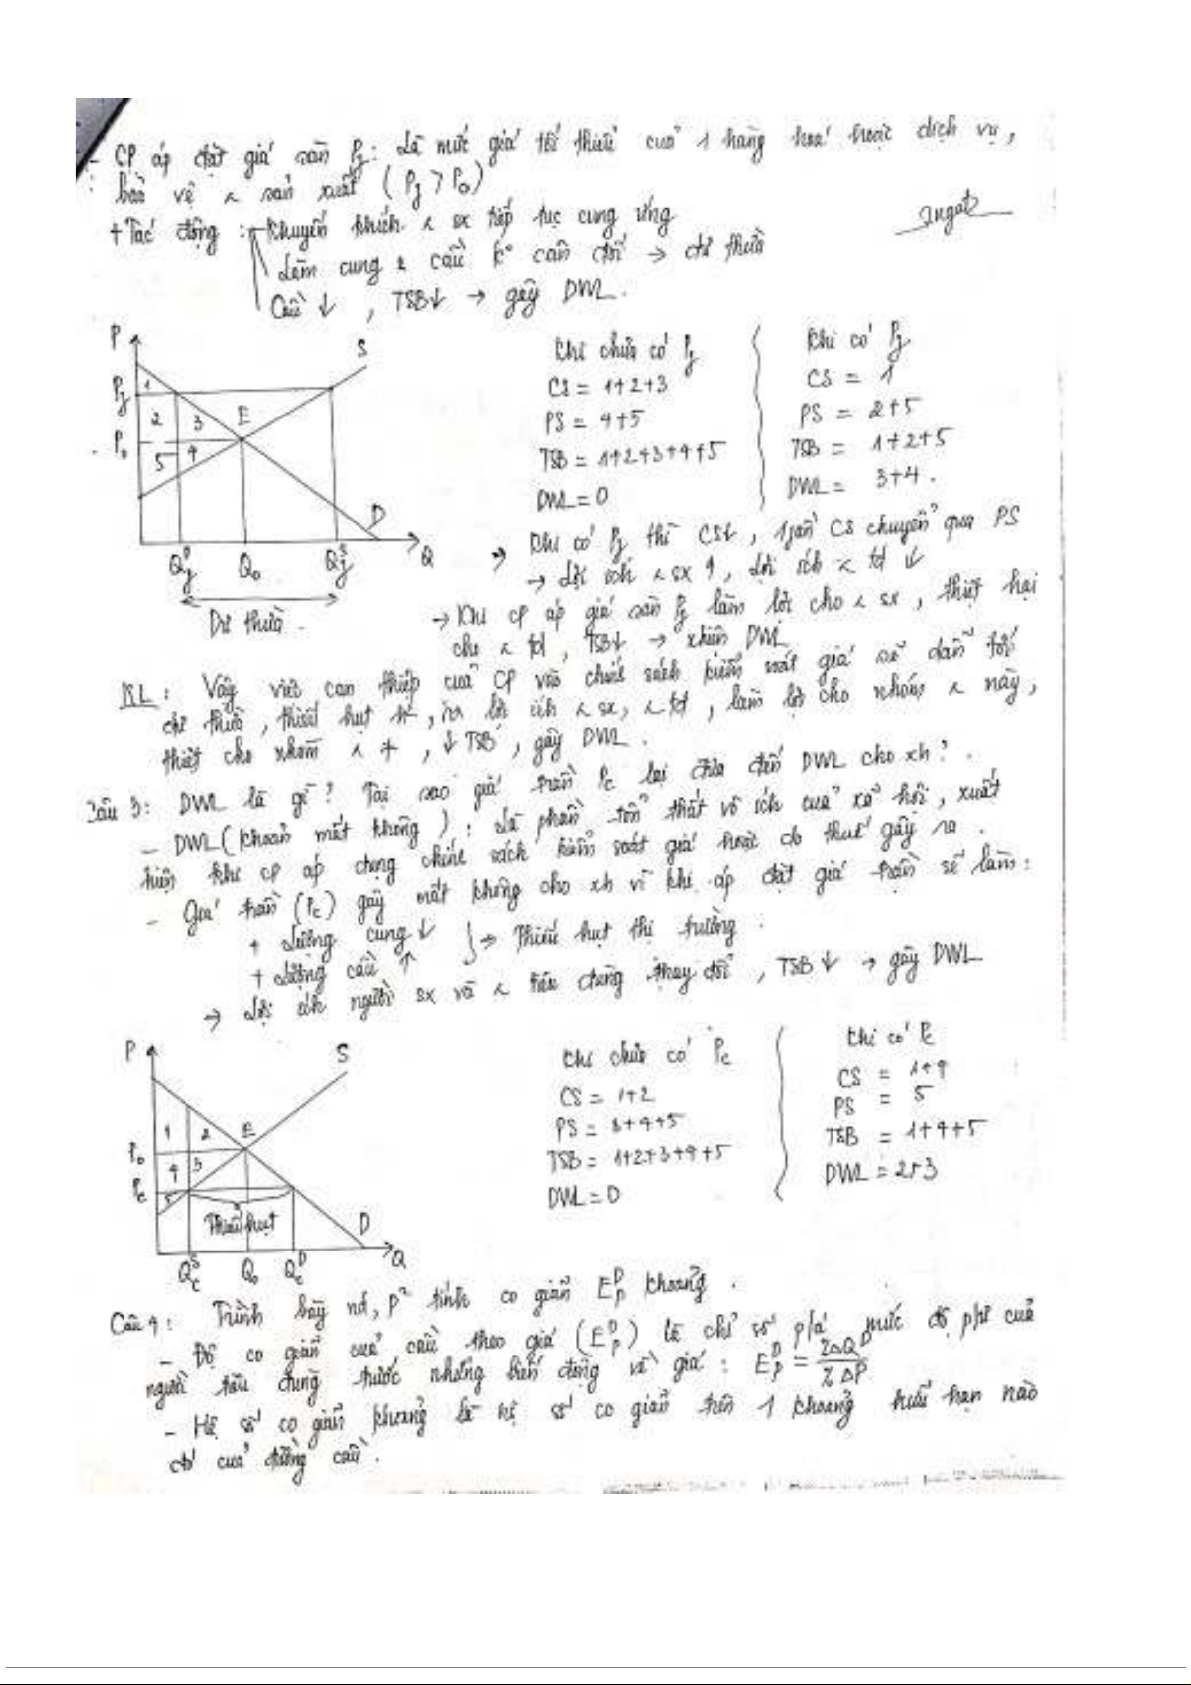 - CP áp đặt giá sàn Pf: Là mức giá tối thiểu của 1 hàng hoá hoặc dịch vụ,
bảo vệ sản xuất (Pf > P₀)
+ Tác động: - Khuyến khích sx tiếp tục cung ứng
Làm cung & cầu k° cân đối → dư thừa
Cầu ↓, TSB↓ → gây DWL.
P
S
Pf
1
2
3
E
P₀
5
4
D
Qf^D
Q₀
Qf^S
Q
Dư thừa.
Khi chưa có Pf
CS = 1+2+3
PS = 4+5
TSB = 1+2+3+4+5
DWL = 0
Khi có Pf
CS = 1
PS = 2+5
TSB = 1+2+5
DWL = 3+4.
→ Khi có Pf thì CS↓, 1 phần CS chuyển qua PS
→ Lợi ích sx ↑, lợi ích td ↓
→ Khi CP áp giá sàn Pf làm lời cho sx, thiệt hại
cho td, TSB↓ → xhiện DWL
KL: Vậy việc can thiệp của CP vào chính sách kiểm soát giá sẽ dẫn tới
dư thừa, thiếu hụt lợi ích sx, td, làm lợi cho nhóm này,
thiệt cho nhóm ≠, ↓TSB, gây DWL.
Câu 3: DWL là gì? Tại sao giá trần Pc lại đưa đến DWL cho xh?
- DWL (khoản mất không): Là phần tổn thất vô ích của xã hội, xuất
hiện khi CP áp dụng chính sách kiểm soát giá hoặc do thuế gây ra.
- Giá trần (Pc) gây mất không cho xh vì khi áp đặt giá trần sẽ làm:
+ Lượng cung ↓ } → Thiếu hụt thị trường.
+ Lượng cầu ↑
→ Lợi ích người sx và tiêu dùng thay đổi, TSB↓ → gây DWL
P
S
1
2
E
P₀
4
3
Pc
5
Thiếu hụt
D
Qc^S
Q₀
Qc^D
Q
Khi chưa có Pc
CS = 1+2
PS = 3+4+5
TSB = 1+2+3+4+5
DWL = 0
Khi có Pc
CS = 1+4
PS = 5
TSB = 1+4+5
DWL = 2+3
Câu 4: Trình bày nd, p² tính co giãn E_P^D khoảng.
- Độ co giãn của cầu theo giá (E_P^D) là chỉ số p/á mức độ p/ứ của
người tiêu dùng trước những biến động về giá: E_P^D = %ΔQ^D / %ΔP
- Hệ số co giãn khoảng là hệ số co giãn trên 1 khoảng hữu hạn nào
đó của đường cầu.